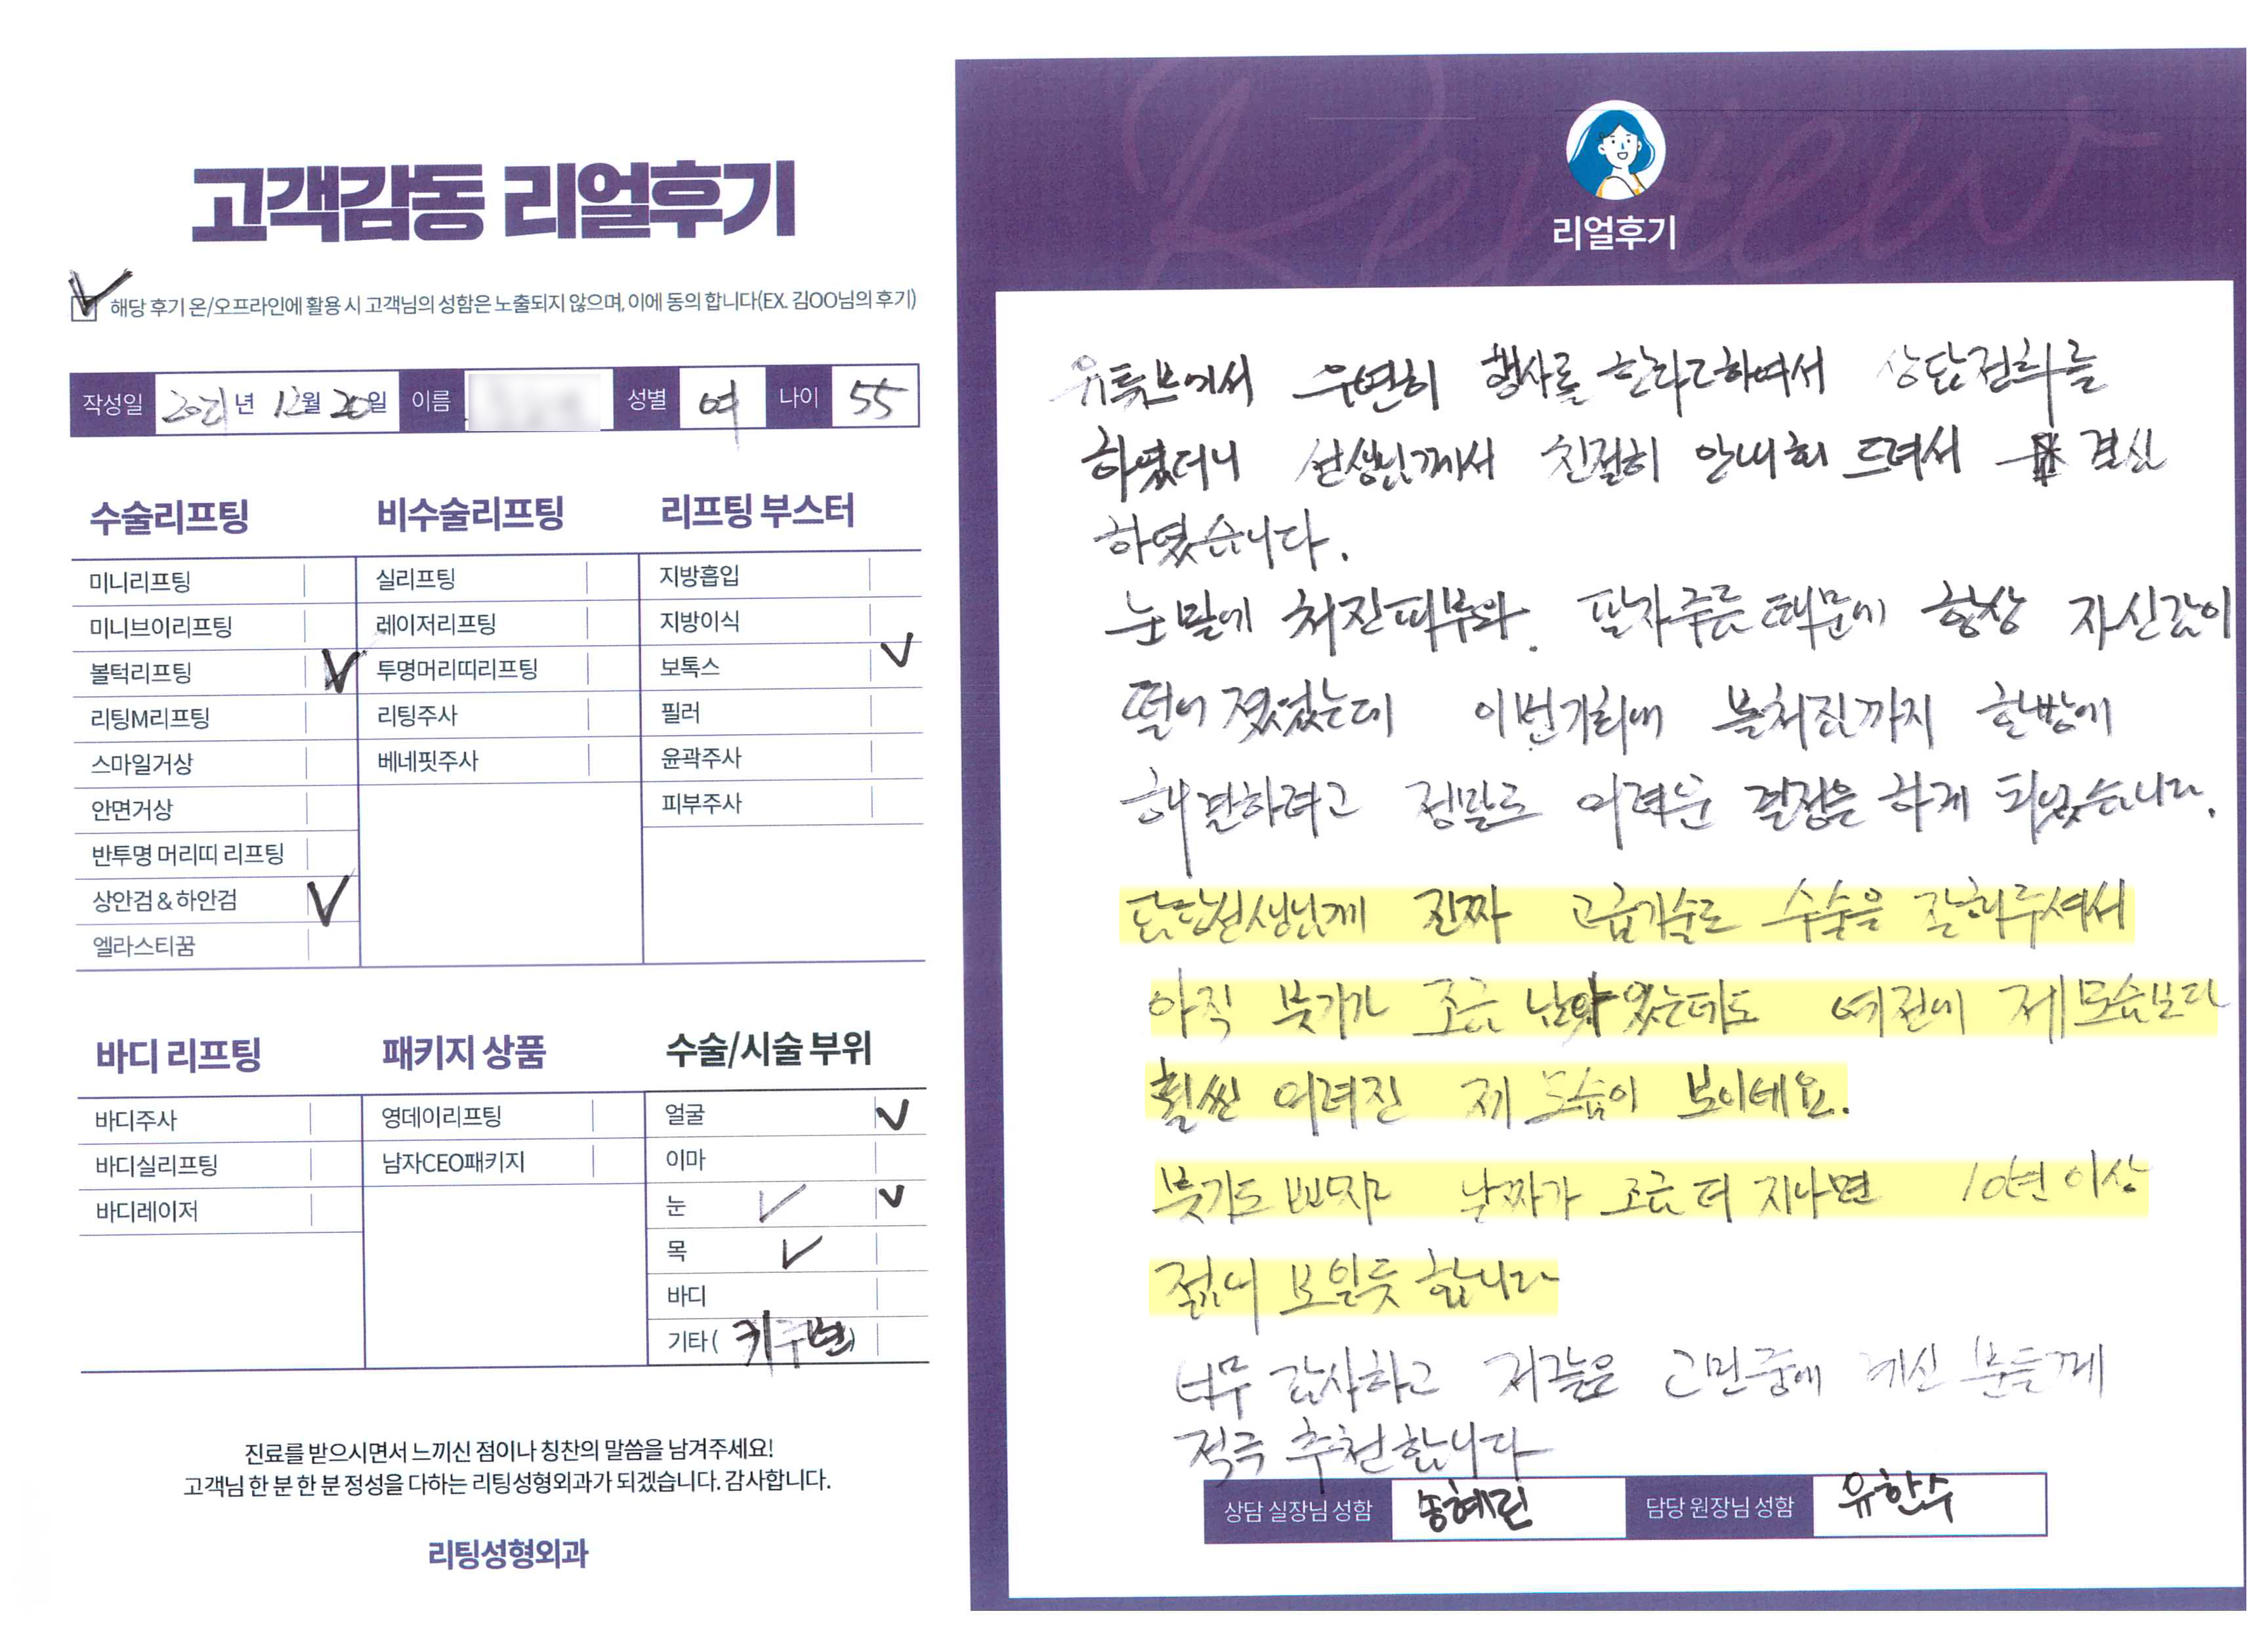 고객감동 리얼후기
해당 후기 온/오프라인에 활용 시 고객님의 성함은 노출되지 않으며, 이에 동의 합니다(EX. 김OO님의 후기)
작성일 2021년 12월 20일 이름 성별 여 나이 55
수술리프팅
미니리프팅
미니브이리프팅
볼턱리프팅
리팅M리프팅
스마일거상
안면거상
반투명 머리띠 리프팅
상안검 & 하안검
엘라스티꿈
비수술리프팅
실리프팅
레이저리프팅
투명머리띠리프팅
리팅주사
베네핏주사
리프팅 부스터
지방흡입
지방이식
보톡스
필러
윤곽주사
피부주사
바디 리프팅
바디주사
바디실리프팅
바디레이저
패키지 상품
영데이리프팅
남자CEO패키지
수술/시술 부위
얼굴
이마
눈
목
바디
기타( 귀주변)
진료를 받으시면서 느끼신 점이나 칭찬의 말씀을 남겨주세요!
고객님 한 분 한 분 정성을 다하는 리팅성형외과가 되겠습니다. 감사합니다.
리팅성형외과
Review
리얼후기
유튜브에서 우연히 행사를 한라고하여서 상담전화를
하였더니 선생님께서 친절히 안내히 드려서 결심
하였습니다.
눈밑에 처진피부와 팔자주름 때문에 항상 자신값이
떨어 졌었는데 이번기회에 볼처짐까지 한방에
해결하려고 정말로 어려운 결정을 하게 되었습니다.
담당선생님께 진짜 고급기술로 수술을 잘해주셔서
아직 붓기가 조금 남아 있는데도 예전에 제 모습보다
훨씬 어려진 제 모습이 보이네요.
붓기도 빠지고 날짜가 조금 더 지나면 10년 이상
젊어 보일듯 합니다
너무 감사하고 저같은 고민중에 계신 분들께
적극 추천합니다
상담 실장님 성함 송혜린 담당 원장님 성함 유한수